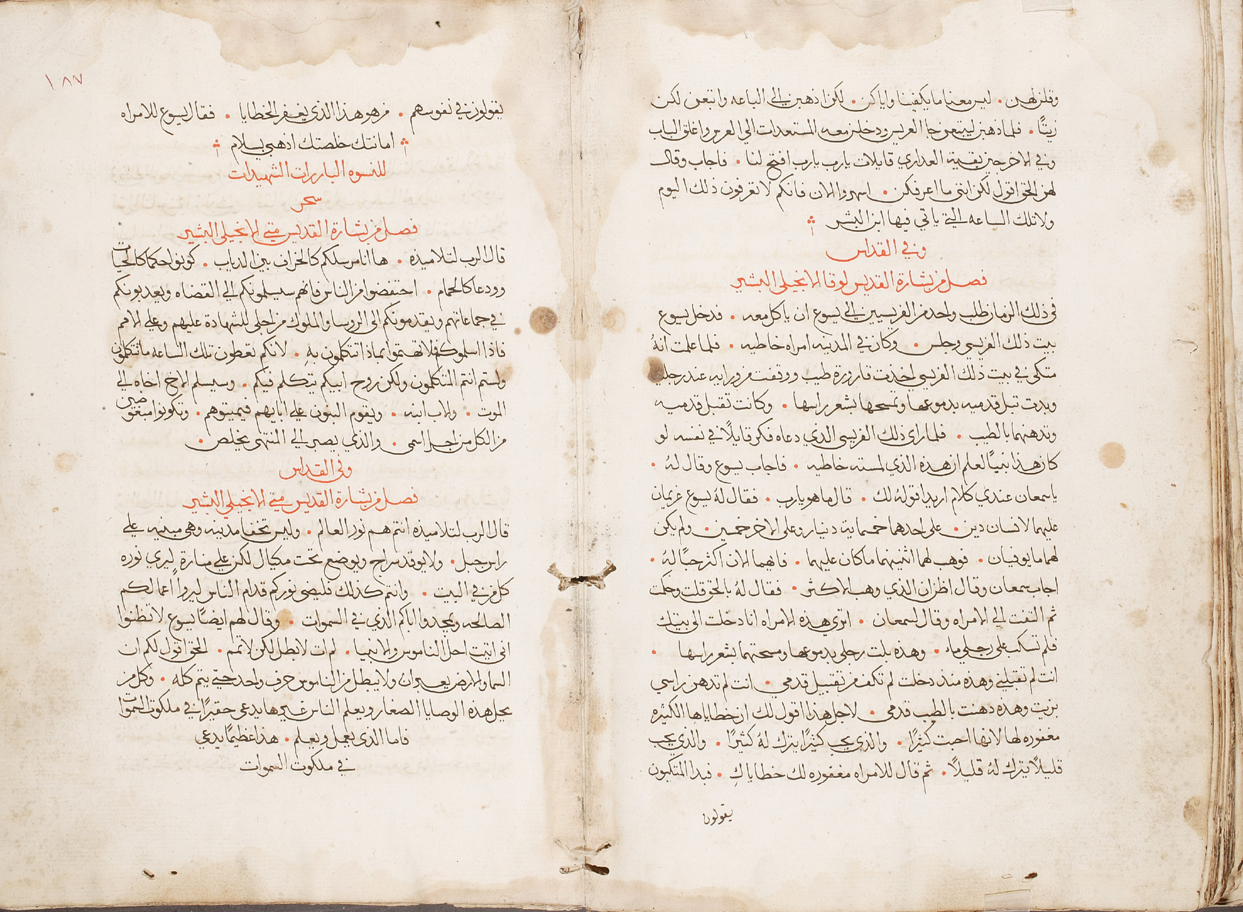 وقلن لهن. ليس معنا ما يكفينا واياكن. لكن اذهبن الي الباعه وابتعن لكن
زيتًا. فلما ذهبن ليبتعن جا العريس ودخلن معه المستعدات الي العرس واغلق الباب
وفي الاخر جين بقية العداري قايلات يارب يارب افتح لنا. فاجاب وقال
لهن الحق اقول لكن انني ما اعرفكن. اسهروا الان فانكم لا تعرفون ذلك اليوم
ولا تلك الساعه التي ياتي فيها ابن البشر
وفي القداس
فصل من بشارة القديس لوقا الانجيلي البشير
في ذلك الزمان طلب واحد من الفريسيين الي يسوع ان ياكل معه. فدخل يسوع
بيت ذلك الفريسي وجلس. وكان في المدينه امراه خاطيه. فلما علمت انهُ
متكي في بيت ذلك الفريسي اخذت قارورة طيب ووقفت من ورايه عند رجليه
وبدت تبل قدميه بدموعها وتمسحها بشعر راسها. وكانت تقبل قدميه
وتدهنهما بالطيب. فلما راي ذلك الفريسي الذي دعاه فكر قايلًا في نفسه لو
كان هذا نبيًا لعلم ان هذه الذي لمسته خاطيه. فاجاب يسوع وقال لهُ.
يا سمعان عندي كلام اريد اقوله لك. قال ما هو يارب. فقال لهُ يسوع غريمان
عليهما لانسان دين. علي احدهما خمسماية دينار وعلي الاخر خمسين. ولم يكن
لهما ما يوفيان. فوهب لهما اثنيتهما ما كان عليهما. فايهما الان اكثر حبًا لهُ.
اجاب سمعان وقال اظن ان الذي وهب له الاكثر. فقال لهُ بالحق قلت وحكمت
ثم التفت الي الامراه وقال لسمعان. اتري هذه الامراه انا دخلت الي بيتك
فلم تسكب علي رجلي ماء. وهذه بلت رجلي بدموعها ومسحتهما بشعر راسها.
انت لم تقبلني وهذه منذ دخلت لم تكف من تقبيل قدمي. انت لم تدهن راسي
بزيت وهذه دهنت بالطيب قدمي. لاجل هذا اقول لك ان خطاياها الكثيره
مغفوره لها لانها احبت كثيرًا. والذي يحب كثيرًا يترك لهُ كثيرًا. والذي يحب
قليلًا يترك لهُ قليلًا. ثم قال للامراه مغفوره لك خطاياكِ. فبدا المتكيون
يقولون
١٨٧
يقولون في نفوسهم. من هو هذا الذي يغفر الخطايا. فقال يسوع للامراه
امانتك خلصتك اذهبي بسلام
للنسوه البارات الشهيدات
سحر
فصل من بشارة القديس متي الانجيلي البشير
قال الرب لتلاميذه. ها انا مرسلكم كالخراف بين الدياب. كونوا حكما كالحيات
وودعا كالحمام. احتفضوا من الناس فانهم سيسلمونكم الي القضاه ويعدبونكم
في جماعاتهم ويقدمونكم الي الروسا والملوك من اجلي للشهادة عليهم وعلي الامم
فاذا اسلموكم فلا تهتموا بماذا تتكلمون بهِ. لانكم تعطون تلك الساعه ما تتكلمون
ولستم انتم المتكلمون ولكن روح ابيكم يتكلم فيكم. وسيسلم الاخ اخاه الي
الموت. والاب ابنه. ويقوم البنون علي ابايهم فيميتوهم. وتكونوا مبغوضين
من الكل من اجل اسمي. والذي يصبر الي المنتهي يخلص.
وفي القداس
فصل من بشارة القديس متي الانجيلي البشير
قال الرب لتلاميذه انتم هم نور العالم. وليس تخفا مدينه وهي مبنيه علي
راس جبل. ولا يوقد سراج ويوضع تحت مكيال لكن علي مناره ليري نوره
كل من في البيت. وانتم كذلك فليضي نوركم قدام الناس ليروا اعمالكم
الصالحه ويمجدوا اباكم الذي في السموات. وقال لهم ايضًا يسوع لا تظنوا
اني اتيت احل الناموس والانبيا. لم ات لابطل لكن لاتمم. الحق اقول لكم ان
السما والارض يعبران ولا يبطل من الناموس حرف واحد حتي يتم كله. وكل من
يحل هذه الوصايا الصغار ويعلم الناس غيرها يدعي حقيرًا في ملكوت السموات
فاما الذي يعمل ويعلم. هذا عظيمًا يدعي
في ملكوت السموات